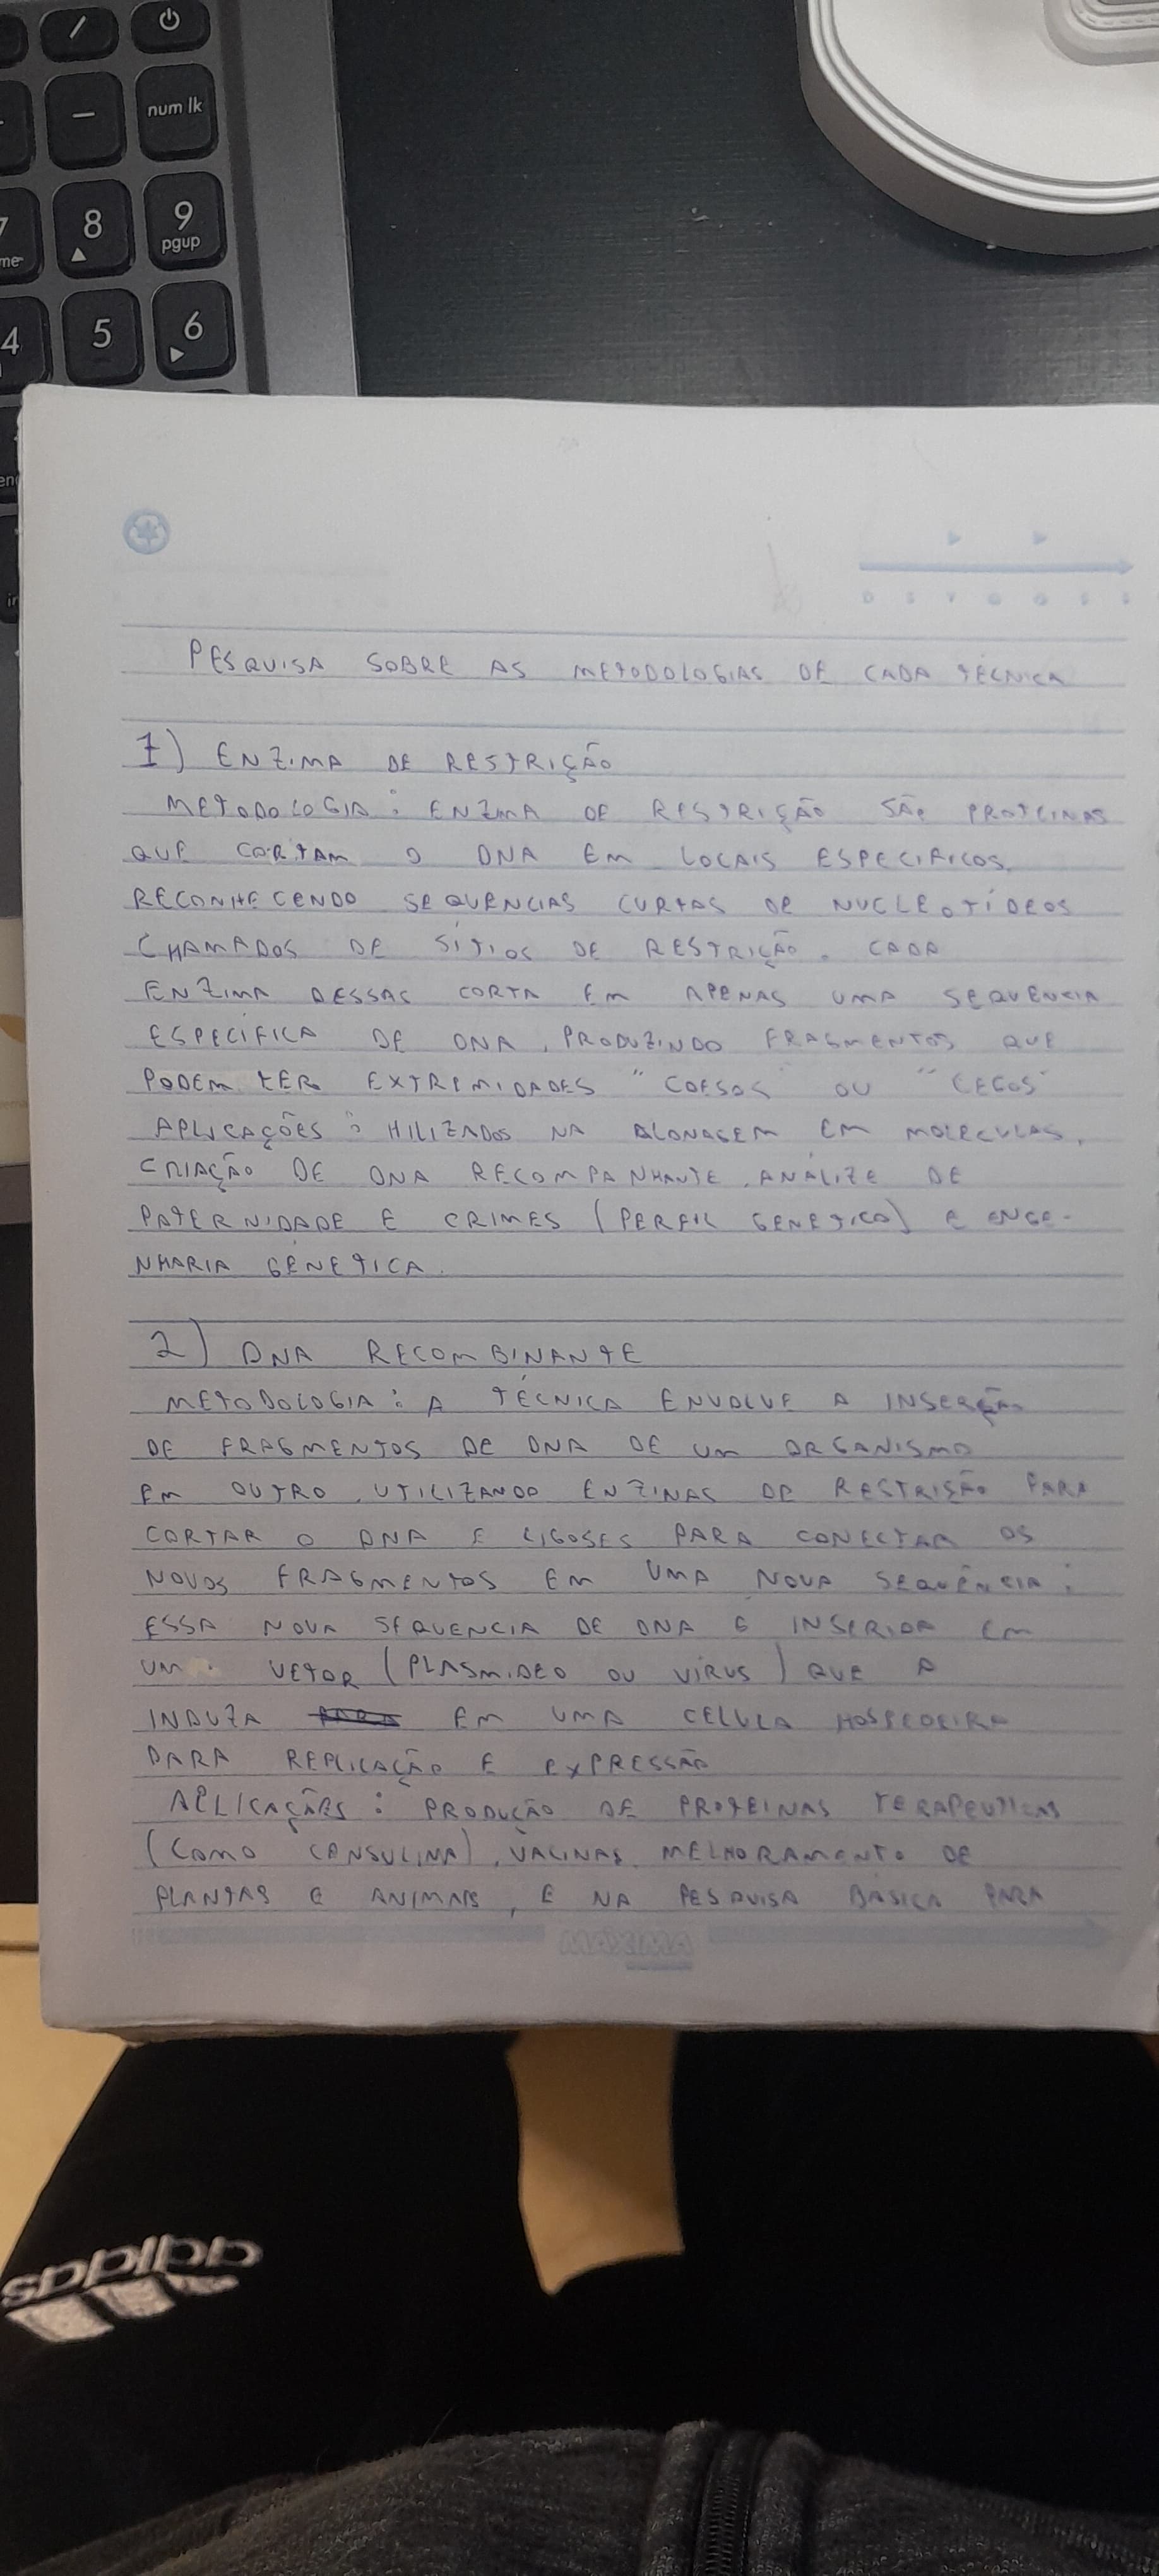 /
−
num lk
7
8
9
pgup
4
5
6
D S T Q Q S S
PESQUISA SOBRE AS METODOLOGIAS DE CADA TÉCNICA
1) ENZIMA DE RESTRIÇÃO
METODOLOGIA: ENZIMA DE RESTRIÇÃO SÃO PROTEINAS
QUE CORTAM O DNA EM LOCAIS ESPECIFICOS,
RECONHECENDO SEQUENCIAS CURTAS DE NUCLEOTÍDEOS
CHAMADOS DE SÍTIOS DE RESTRIÇÃO. CADA
ENZIMA DESSAS CORTA EM APENAS UMA SEQUENCIA
ESPECÍFICA DE DNA, PRODUZINDO FRAGMENTOS QUE
PODEM TER EXTREMIDADES "COESOS" OU "CEGOS"
APLICAÇÕES: HILIZADOS NA CLONAGEM EM MOLECULAS,
CRIAÇÃO DE DNA RECOMPANHANTE, ANÁLIZE DE
PATERNIDADE E CRIMES (PERFIL GENETICO) E ENGE-
NHARIA GENETICA.
2) DNA RECOMBINANTE
METODOLOGIA: A TÉCNICA ENVOLVE A INSERÇÃO
DE FRAGMENTOS DE DNA DE UM ORGANISMO
EM OUTRO, UTILIZANDO ENZINAS DE RESTRISÃO PARA
CORTAR O DNA E LIGOSES PARA CONECTAR OS
NOVOS FRAGMENTOS EM UMA NOVA SEQUÊNCIA:
ESSA NOVA SEQUENCIA DE DNA E INSERIDA EM
UM VETOR (PLASMIDEO OU VÍRUS) QUE A
INDUZA EM UMA CELULA HOSPEDEIRA
PARA REPLICAÇÃO E EXPRESSÃO
APLICAÇÃES: PRODUÇÃO DE PROTEINAS TERAPEUTICAS
(COMO CANSULINA), VACINAS, MELHORAMENTO DE
PLANTAS E ANIMAIS, E NA PESQUISA BÁSICA PARA
MÁXIMA
adidas